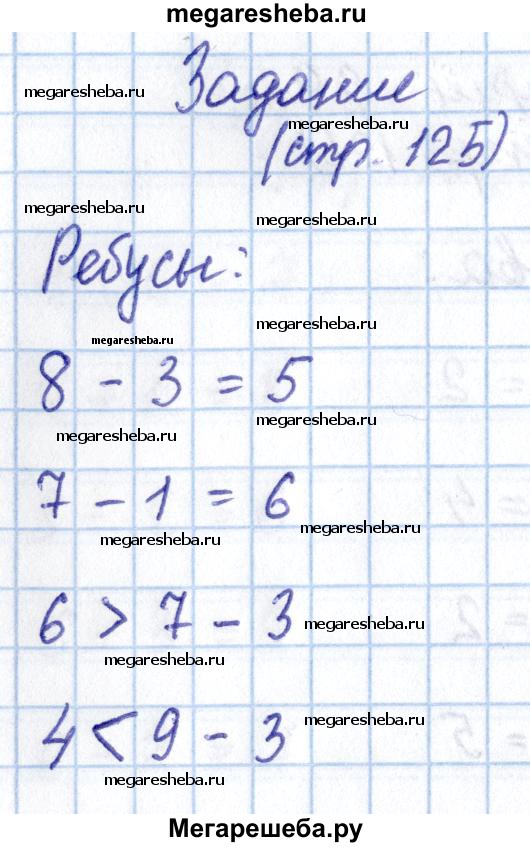 megaresheba.ru
megaresheba.ru
Задание
megaresheba.ru
megaresheba.ru
(стр. 125)
megaresheba.ru
megaresheba.ru
Ребусы:
megaresheba.ru
megaresheba.ru
8 - 3 = 5
megaresheba.ru
megaresheba.ru
7 - 1 = 6
megaresheba.ru
megaresheba.ru
6 > 7 - 3 megaresheba.ru
megaresheba.ru
megaresheba.ru
4 < 9 - 3
megaresheba.ru
Мегарешеба.ру